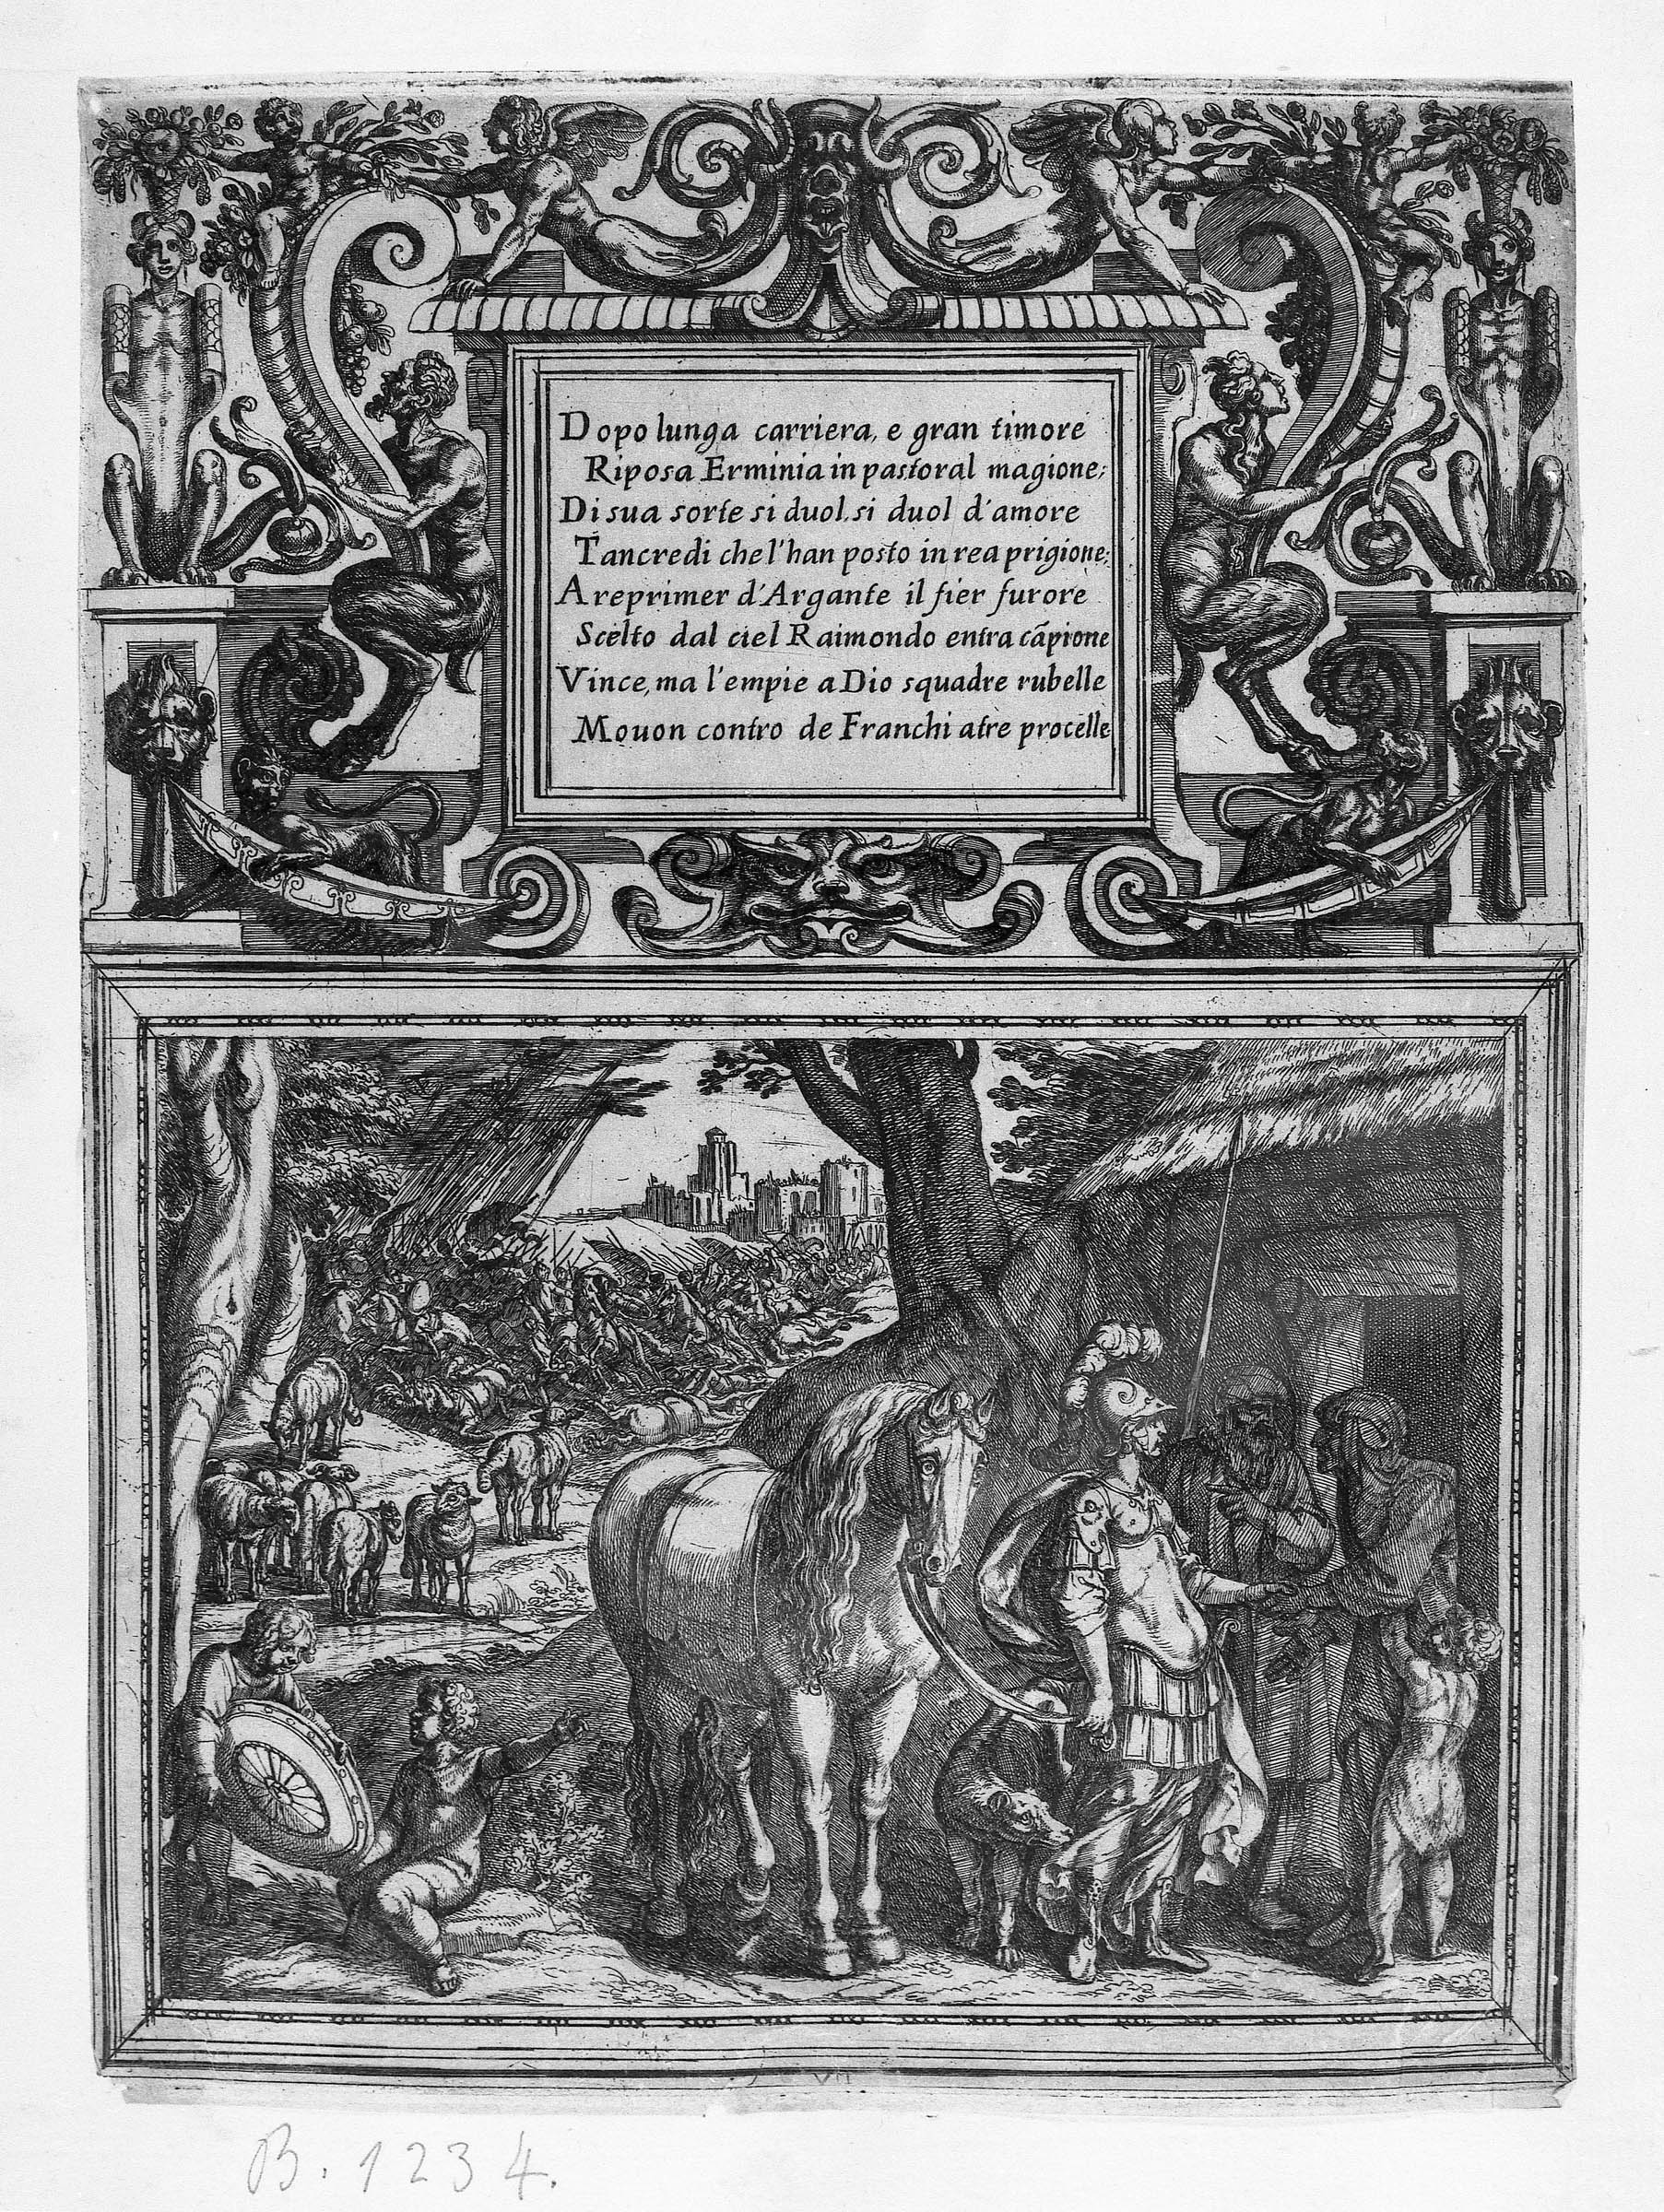 Dopo lunga carriera, e gran timore
Riposa Erminia in pastoral magione;
Di sua sorte si duol, si duol d'amore
Tancredi che l'han posto in rea prigione;
A reprimer d'Argante il fier furore
Scelto dal ciel Raimondo entra cãpione
Vince, ma l'empie a Dio squadre rubelle
Mouon contro de Franchi atre procelle
VII
B. 1234.